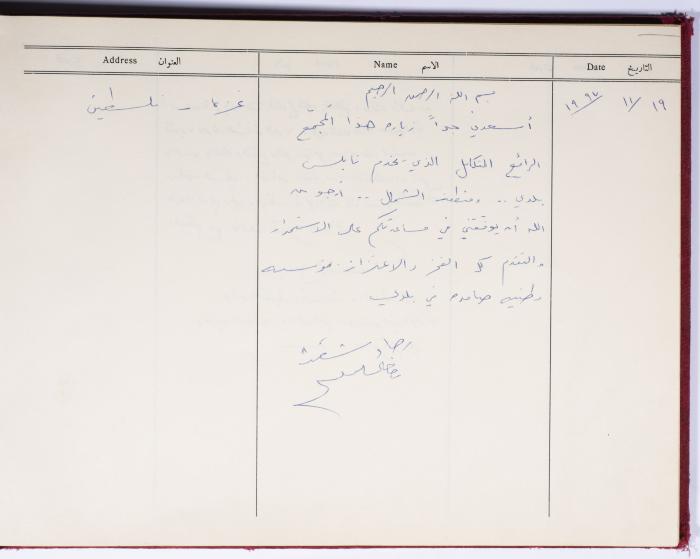 التاريخ Date الاسم Name العنوان Address
١٩ / ١١ / ١٩٩٧
بسم الله الرحمن الرحيم
غزة - فلسطين
أسعدني جداً زيارة هذا المجمع
الرائع المتكامل الذي يخدم نابلس
بلدي .. ومنطقة الشمال .. أرجو من
الله أن يوفقني في مساعدتكم على الاستمرار
والتقدم كل الفخر والاعتزاز بمؤسسه
وطنيه صامده في بلدي